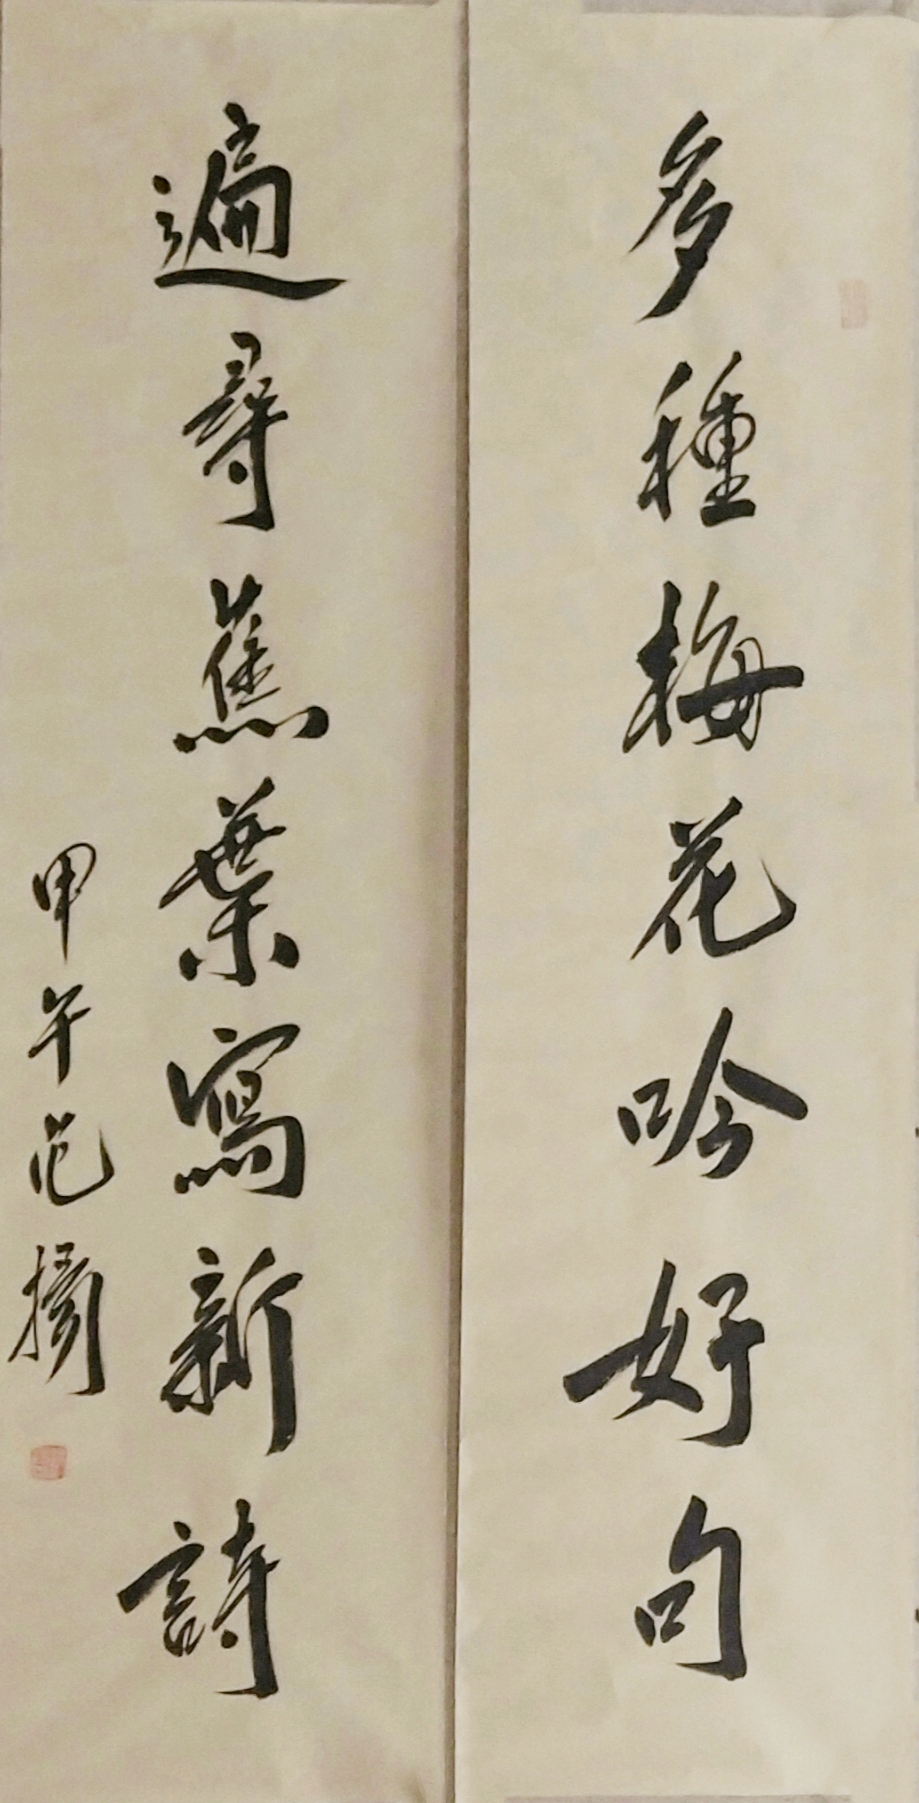 多種梅花吟好句
遍尋蕉葉寫新詩
甲午